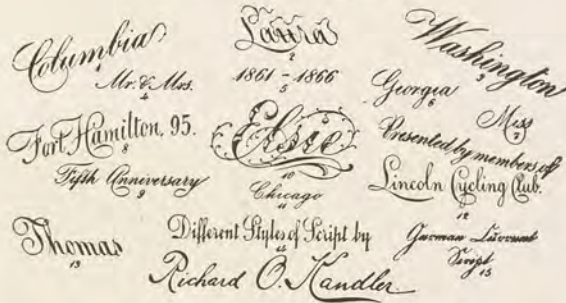 Columbia
1
Laura
2
Washington
3
Mr. & Mrs.
4
1861 - 1866
5
Georgia
6
Miss
7
Fort Hamilton, 95.
8
Fifth Anniversary
9
Elsie
10
Chicago
11
Presented by members of
Lincoln Cycling Club.
12
Thomas
13
Different Styles of Script by
14
Richard O. Kandler.
German Current
Script
15